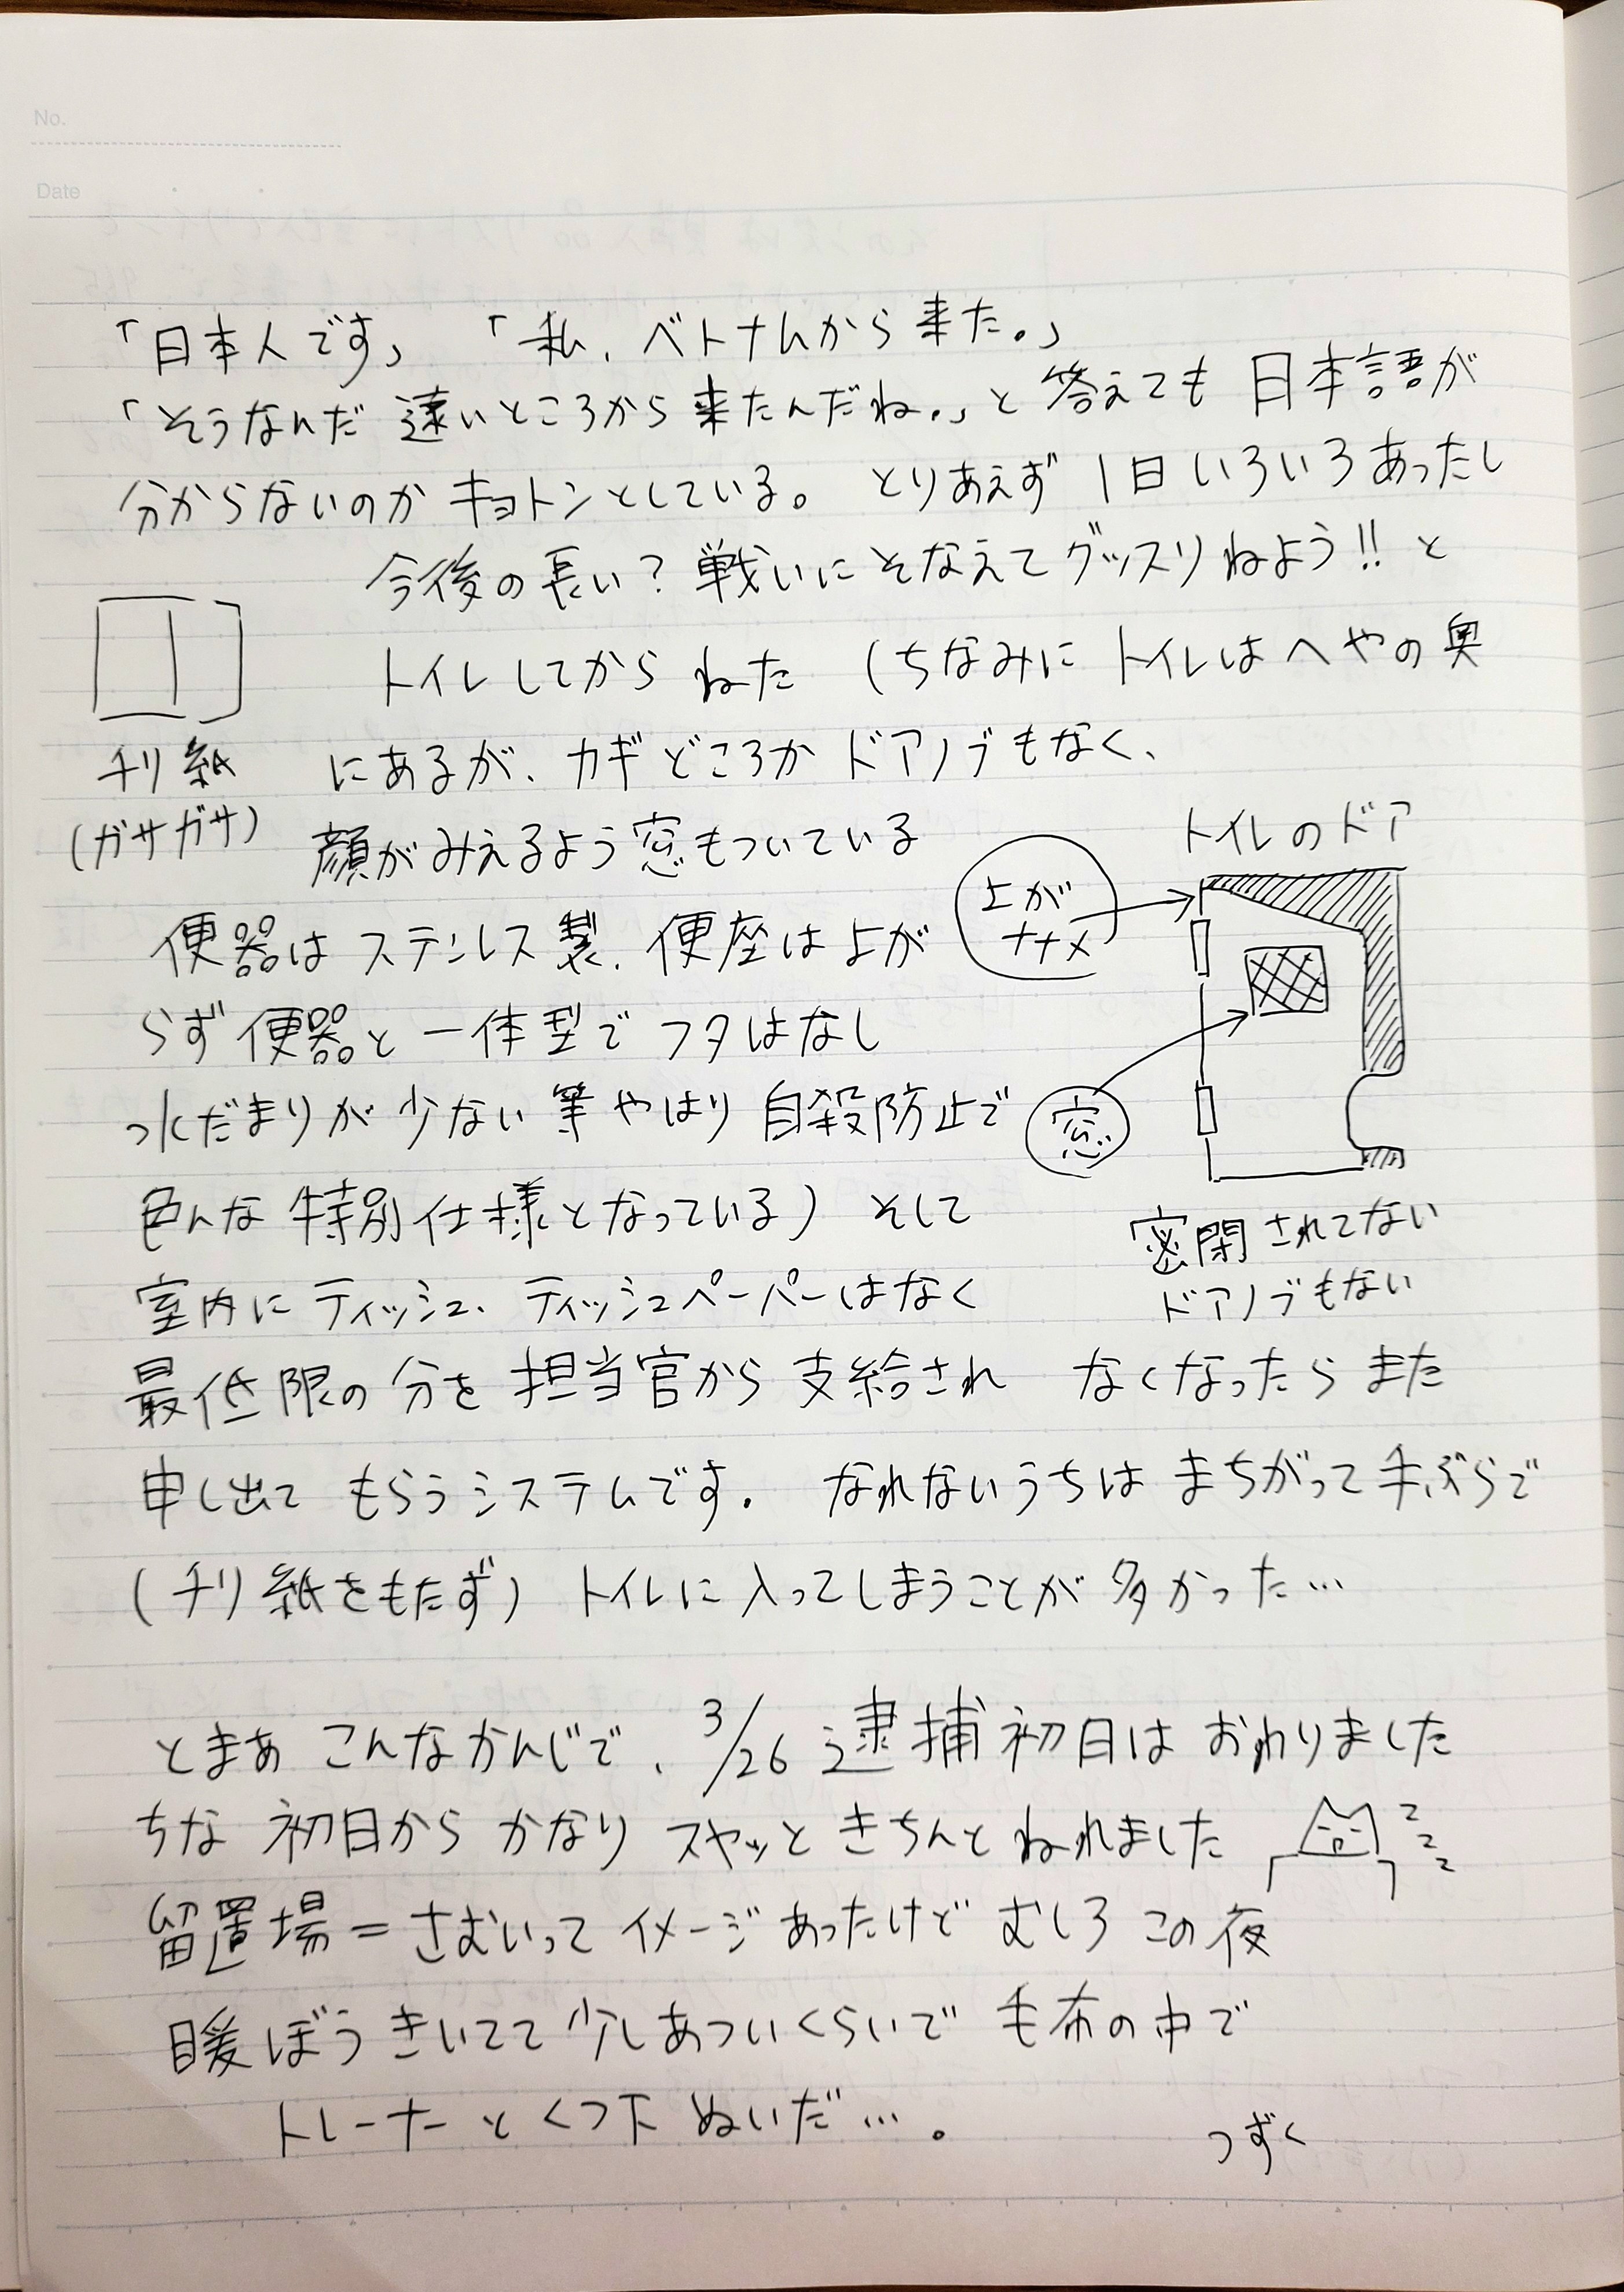 No.
Date
「日本人です」 「私、ベトナムから来た。」
「そうなんだ 遠いところから来たんだね。」と答えても日本語が
分からないのかキョトンとしている。 とりあえず1日いろいろあったし
今後の長い?戦いにそなえてグッスリねよう!!と
トイレしてからねた (ちなみにトイレはへやの奥
にあるが、カギどころかドアノブもなく、
顔がみえるよう窓もついている
便器はステンレス製、便座は上が
らず便器と一体型でフタはなし
水だまりが少ない等やはり自殺防止で
色んな特別仕様となっている) そして
室内にティッシュ、ティッシュペーパーはなく
最低限の分を担当官から支給され なくなったらまた
申し出て もらうシステムです。 なれないうちはまちがって手ぶらで
(チリ紙をもたず) トイレに入ってしまうことが多かった…
チリ紙
(ガサガサ)
トイレのドア
上が
ナナメ
窓
密閉されてない
ドアノブもない
とまぁ こんなかんじで、3/26 逮捕初日はおわりました
ちな 初日から かなり スヤッと きちんとねれました
zzz
留置場=さむいってイメージあったけど むしろ この夜
暖ぼうきいてて少しあついくらいで 毛布の中で
トレーナーとくつ下ぬいだ…。
つずく